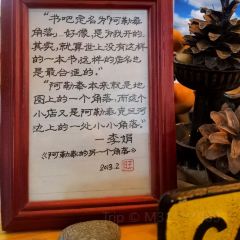 “书吧定名为“阿勒泰
角落”，好像是为我开的.
其实，就算世上没有这样
的一本书这样的店名也
是最合适的.”
“阿勒泰本来就是地
图上的一个角落.而这个
小店又是阿勒泰克兰河
边上的一处小小角落.”
—李娟
《阿勒泰的另一个角落》
2013.2
Trip ©